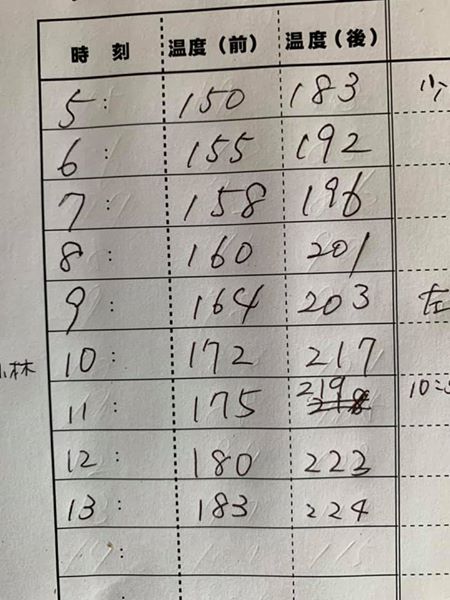 時刻 温度(前) 温度(後)
5: 150 183
6: 155 192
7: 158 196
8: 160 201
9: 164 203 左
小林 10: 172 217
11: 175 219
12: 180 223
13: 183 224